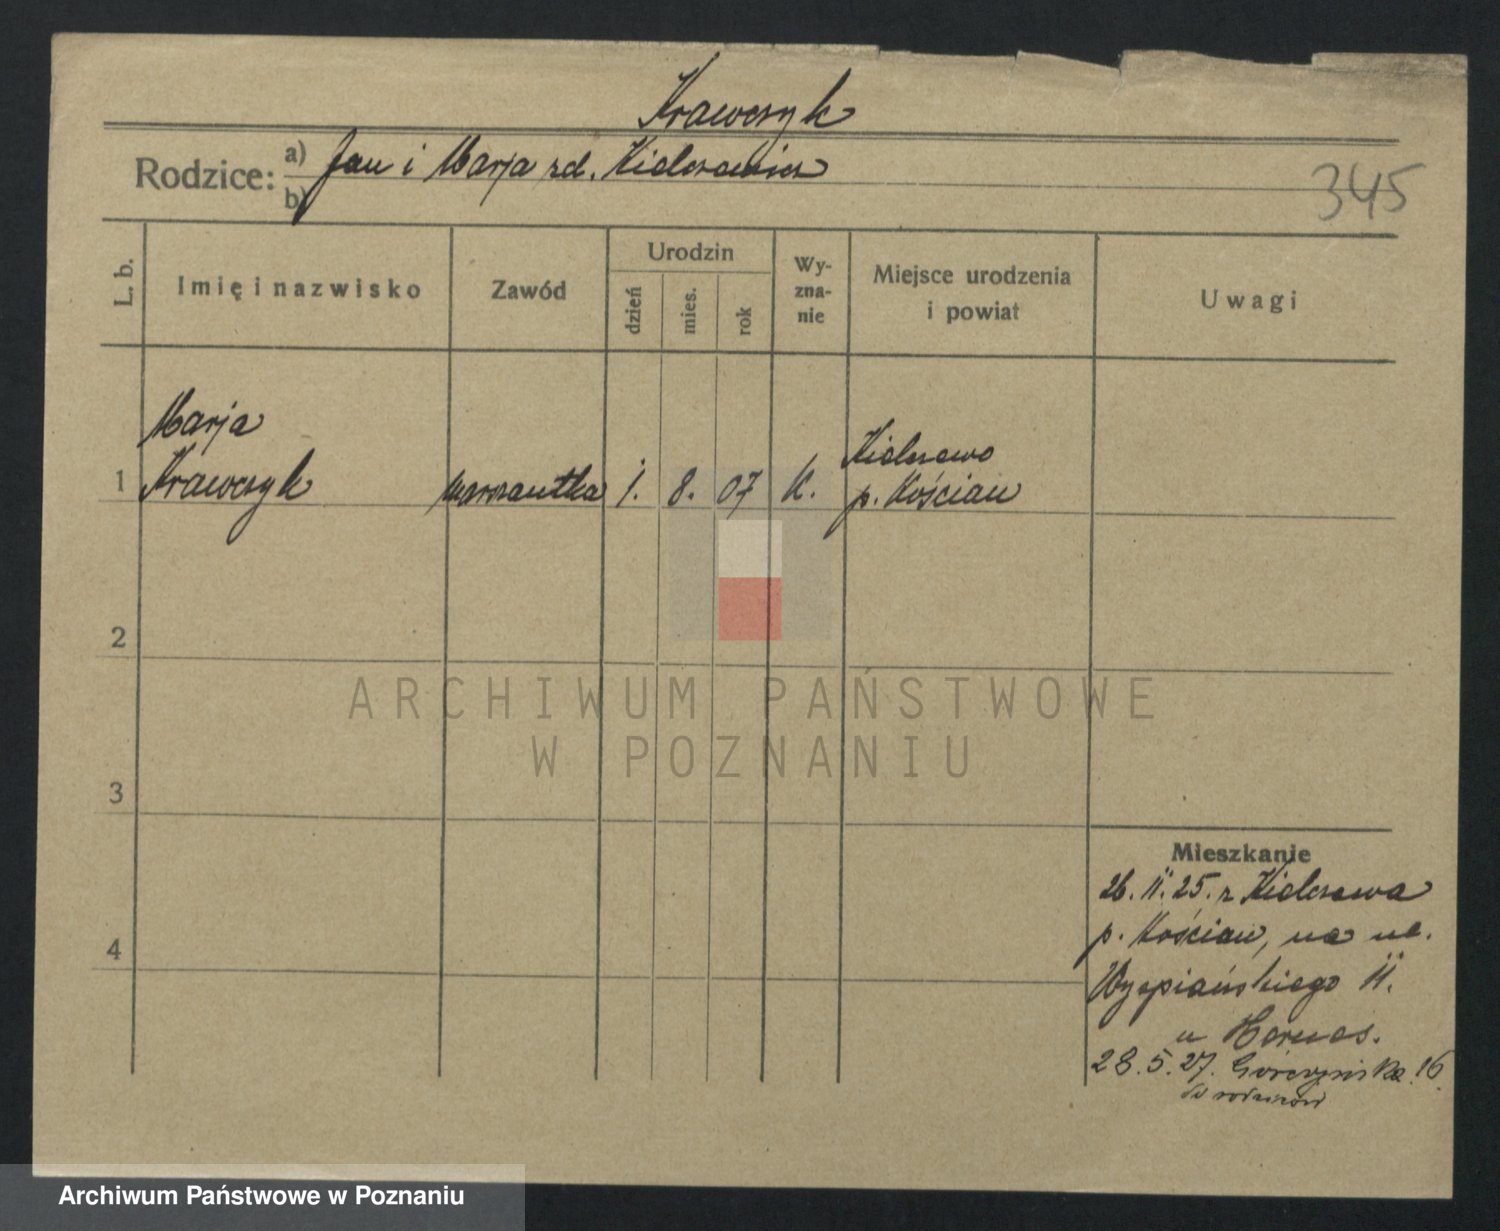 Krawczyk
Rodzice: a) Jan i Marja zd. Kielczewicz
b)
345
L. b.
Imię i nazwisko
Zawód
Urodzin
dzień
mies.
rok
Wy-
zna-
nie
Miejsce urodzenia
i powiat
Uwagi
Marja
Kielczewo
1 Krawczyk
1. 8. 07 K.
p. Kościan
2
3
4
ARCHIWUM PAŃSTWOWE
W POZNANIU
Mieszkanie
26. 11. 25. z Kielczewa
p. Kościan, na ul.
Wyspiańskiego 11.
u
28. 5. 27. Górczyńska 16.
Archiwum Państwowe w Poznaniu